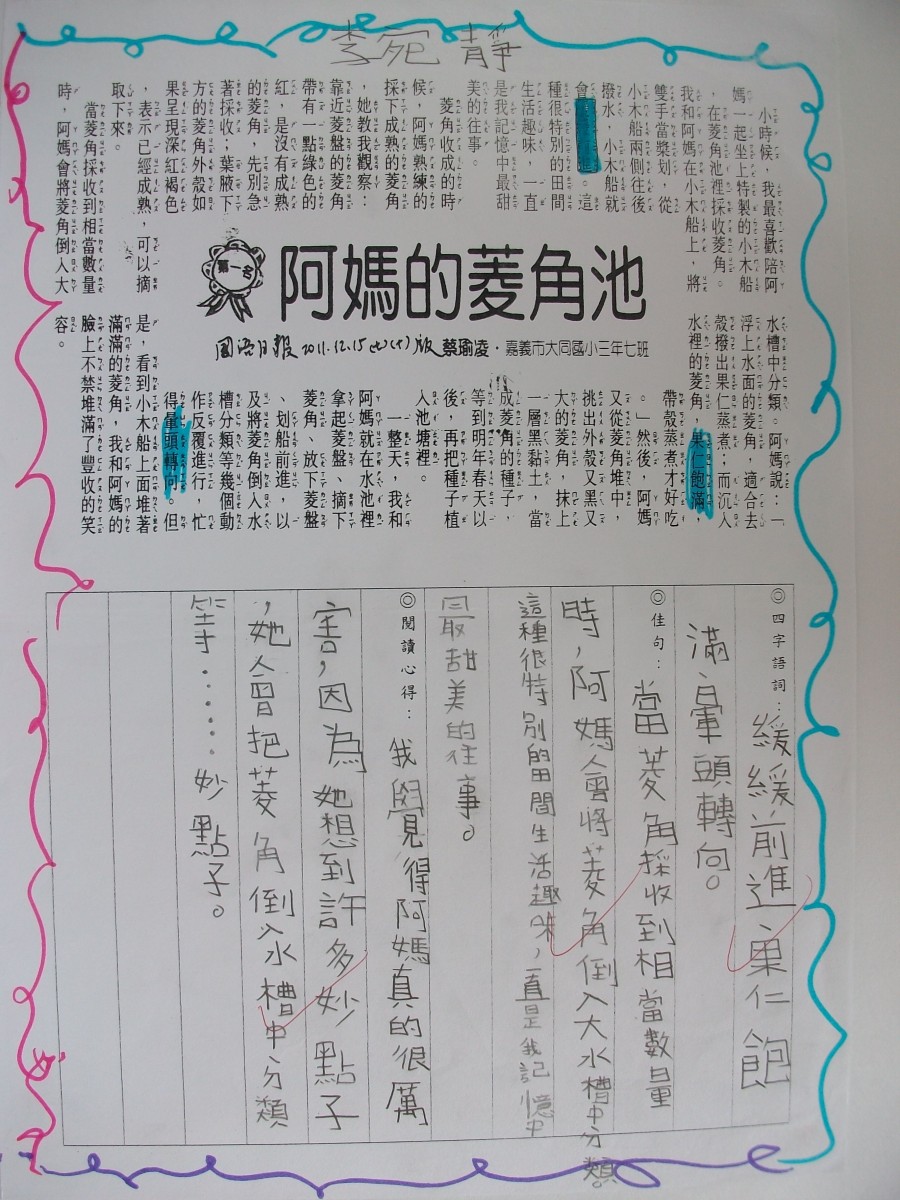 李宛靜
小時候，我最喜歡陪阿
媽一起坐上特製的小木船
，在菱角池裡採收菱角。
我和阿媽在小木船上，將
雙手當槳划，從
小木船兩側往後
撥水，小木船就
會　　　　。這
種很特別的田間
生活趣味，一直
是我記憶中最甜
美的往事。
菱角收成的時
候，阿媽熟練的
採下成熟的菱角
，她教我觀察：
靠近菱盤的菱角
帶有一點綠色的
紅，是沒有成熟
的菱，先別急
著採收；葉腋下
方的菱角外殼如
果呈現深紅褐色
，表示已經成熟，可以摘
取下來。
當菱角採收到相當數量
時，阿媽會將菱角倒入大
第一名
阿媽的菱角池
國語日報 2011.12.15(七)(十)版 蔡瑜凌‧嘉義市大同國小三年七班
水槽中分類。阿媽說：「
浮上水面的菱角，適合去
殼撥出果仁蒸煮；而沉入
水裡的菱角，果仁飽滿，
帶殼蒸煮才好吃
。」然後，阿媽
又從菱角堆中，
挑出外殼又黑又
大的菱角，抹上
一層黑黏土，當
成菱角的種子，
等到明年春天以
後，再把種子植
入池塘裡。
一整天，我和
阿媽就在水池裡
拿起菱盤、摘下
菱角、放下菱盤
、划船前進，以
及將菱角倒入水
槽分類等幾個動
作反覆進行，忙
得暈頭轉向。但
是，看到小木船上面堆著
滿滿的菱角，我和阿媽的
臉上不禁堆滿了豐收的笑
容。
◎四字語詞：緩緩前進、果仁飽
滿、暈頭轉向。
◎佳句：當菱角採收到相當數量
時，阿媽會將菱角倒入大水槽中分類。
這種很特別的田間生活趣味，一直是我記憶中
最甜美的往事。
◎閱讀心得：我覺得阿媽真的很厲
害，因為她想到許多妙點子
，她會把菱角倒入水槽中分類
等……妙點子。